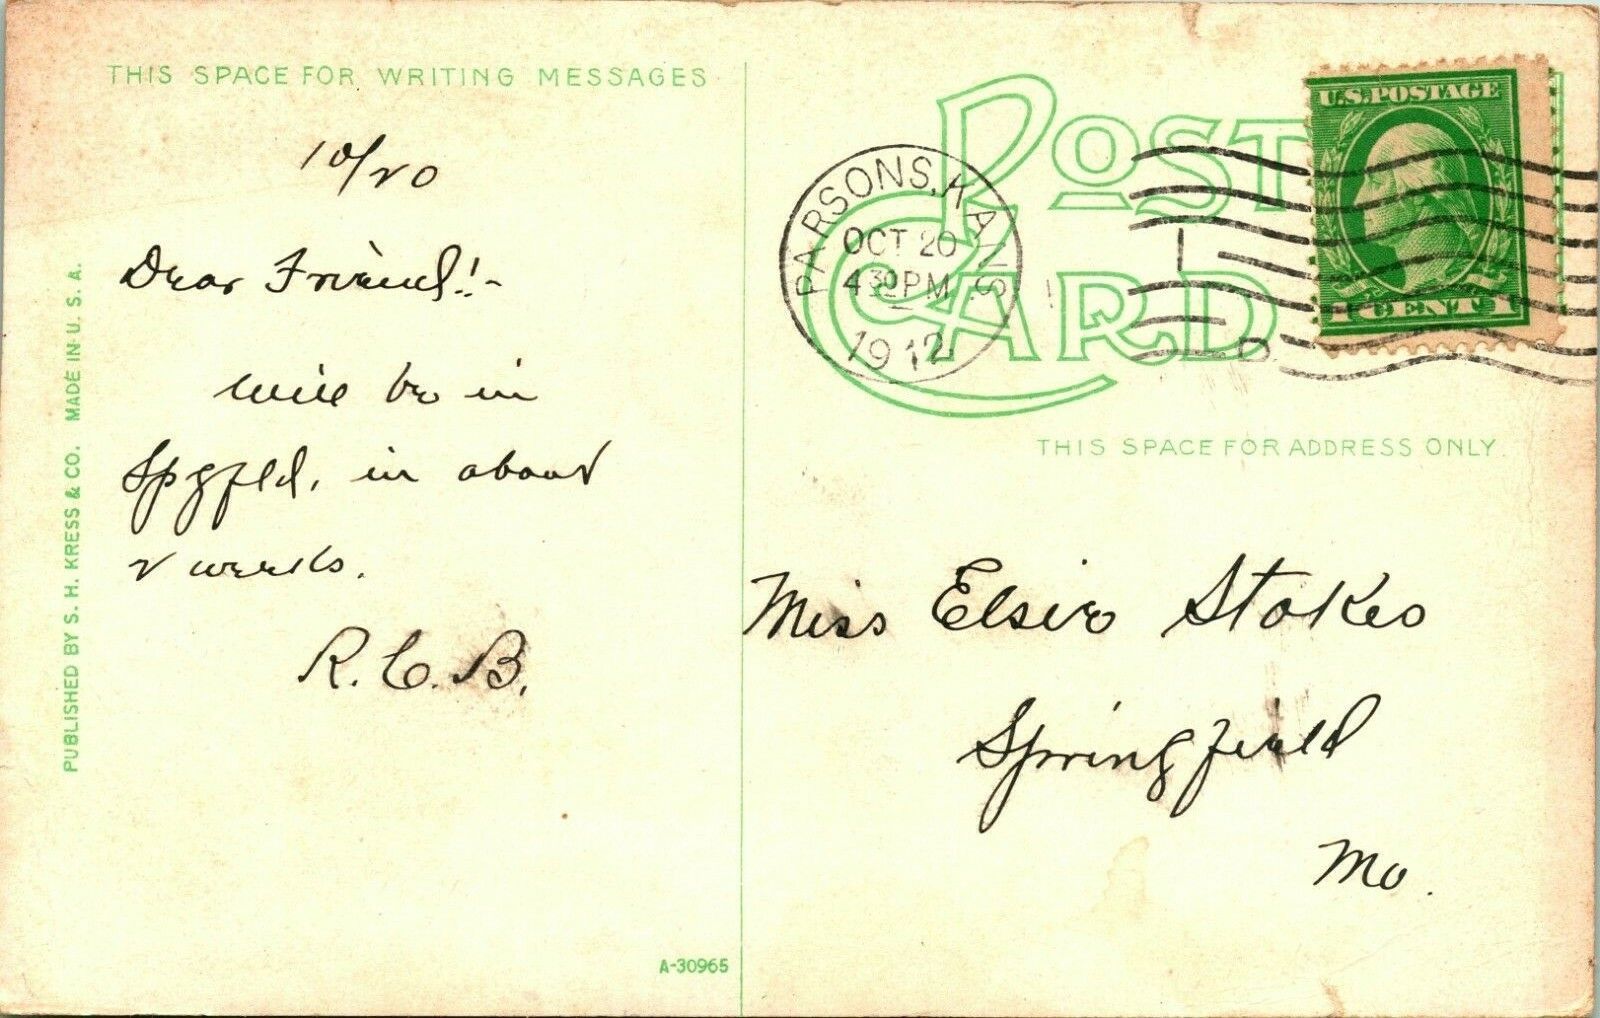 THIS SPACE FOR WRITING MESSAGES
10/20
Dear Friend!-
will be in
Spgfld. in about
2 weeks.
R.C.B.
PUBLISHED BY S. H. KRESS & CO. MADE IN U. S. A.
A-30965
POST
CARD
PARSONS, KANS.
OCT 20
4 30 PM
1912
U.S. POSTAGE
1 CENT 1
THIS SPACE FOR ADDRESS ONLY.
Miss Elsie Stokes
Springfield
Mo.